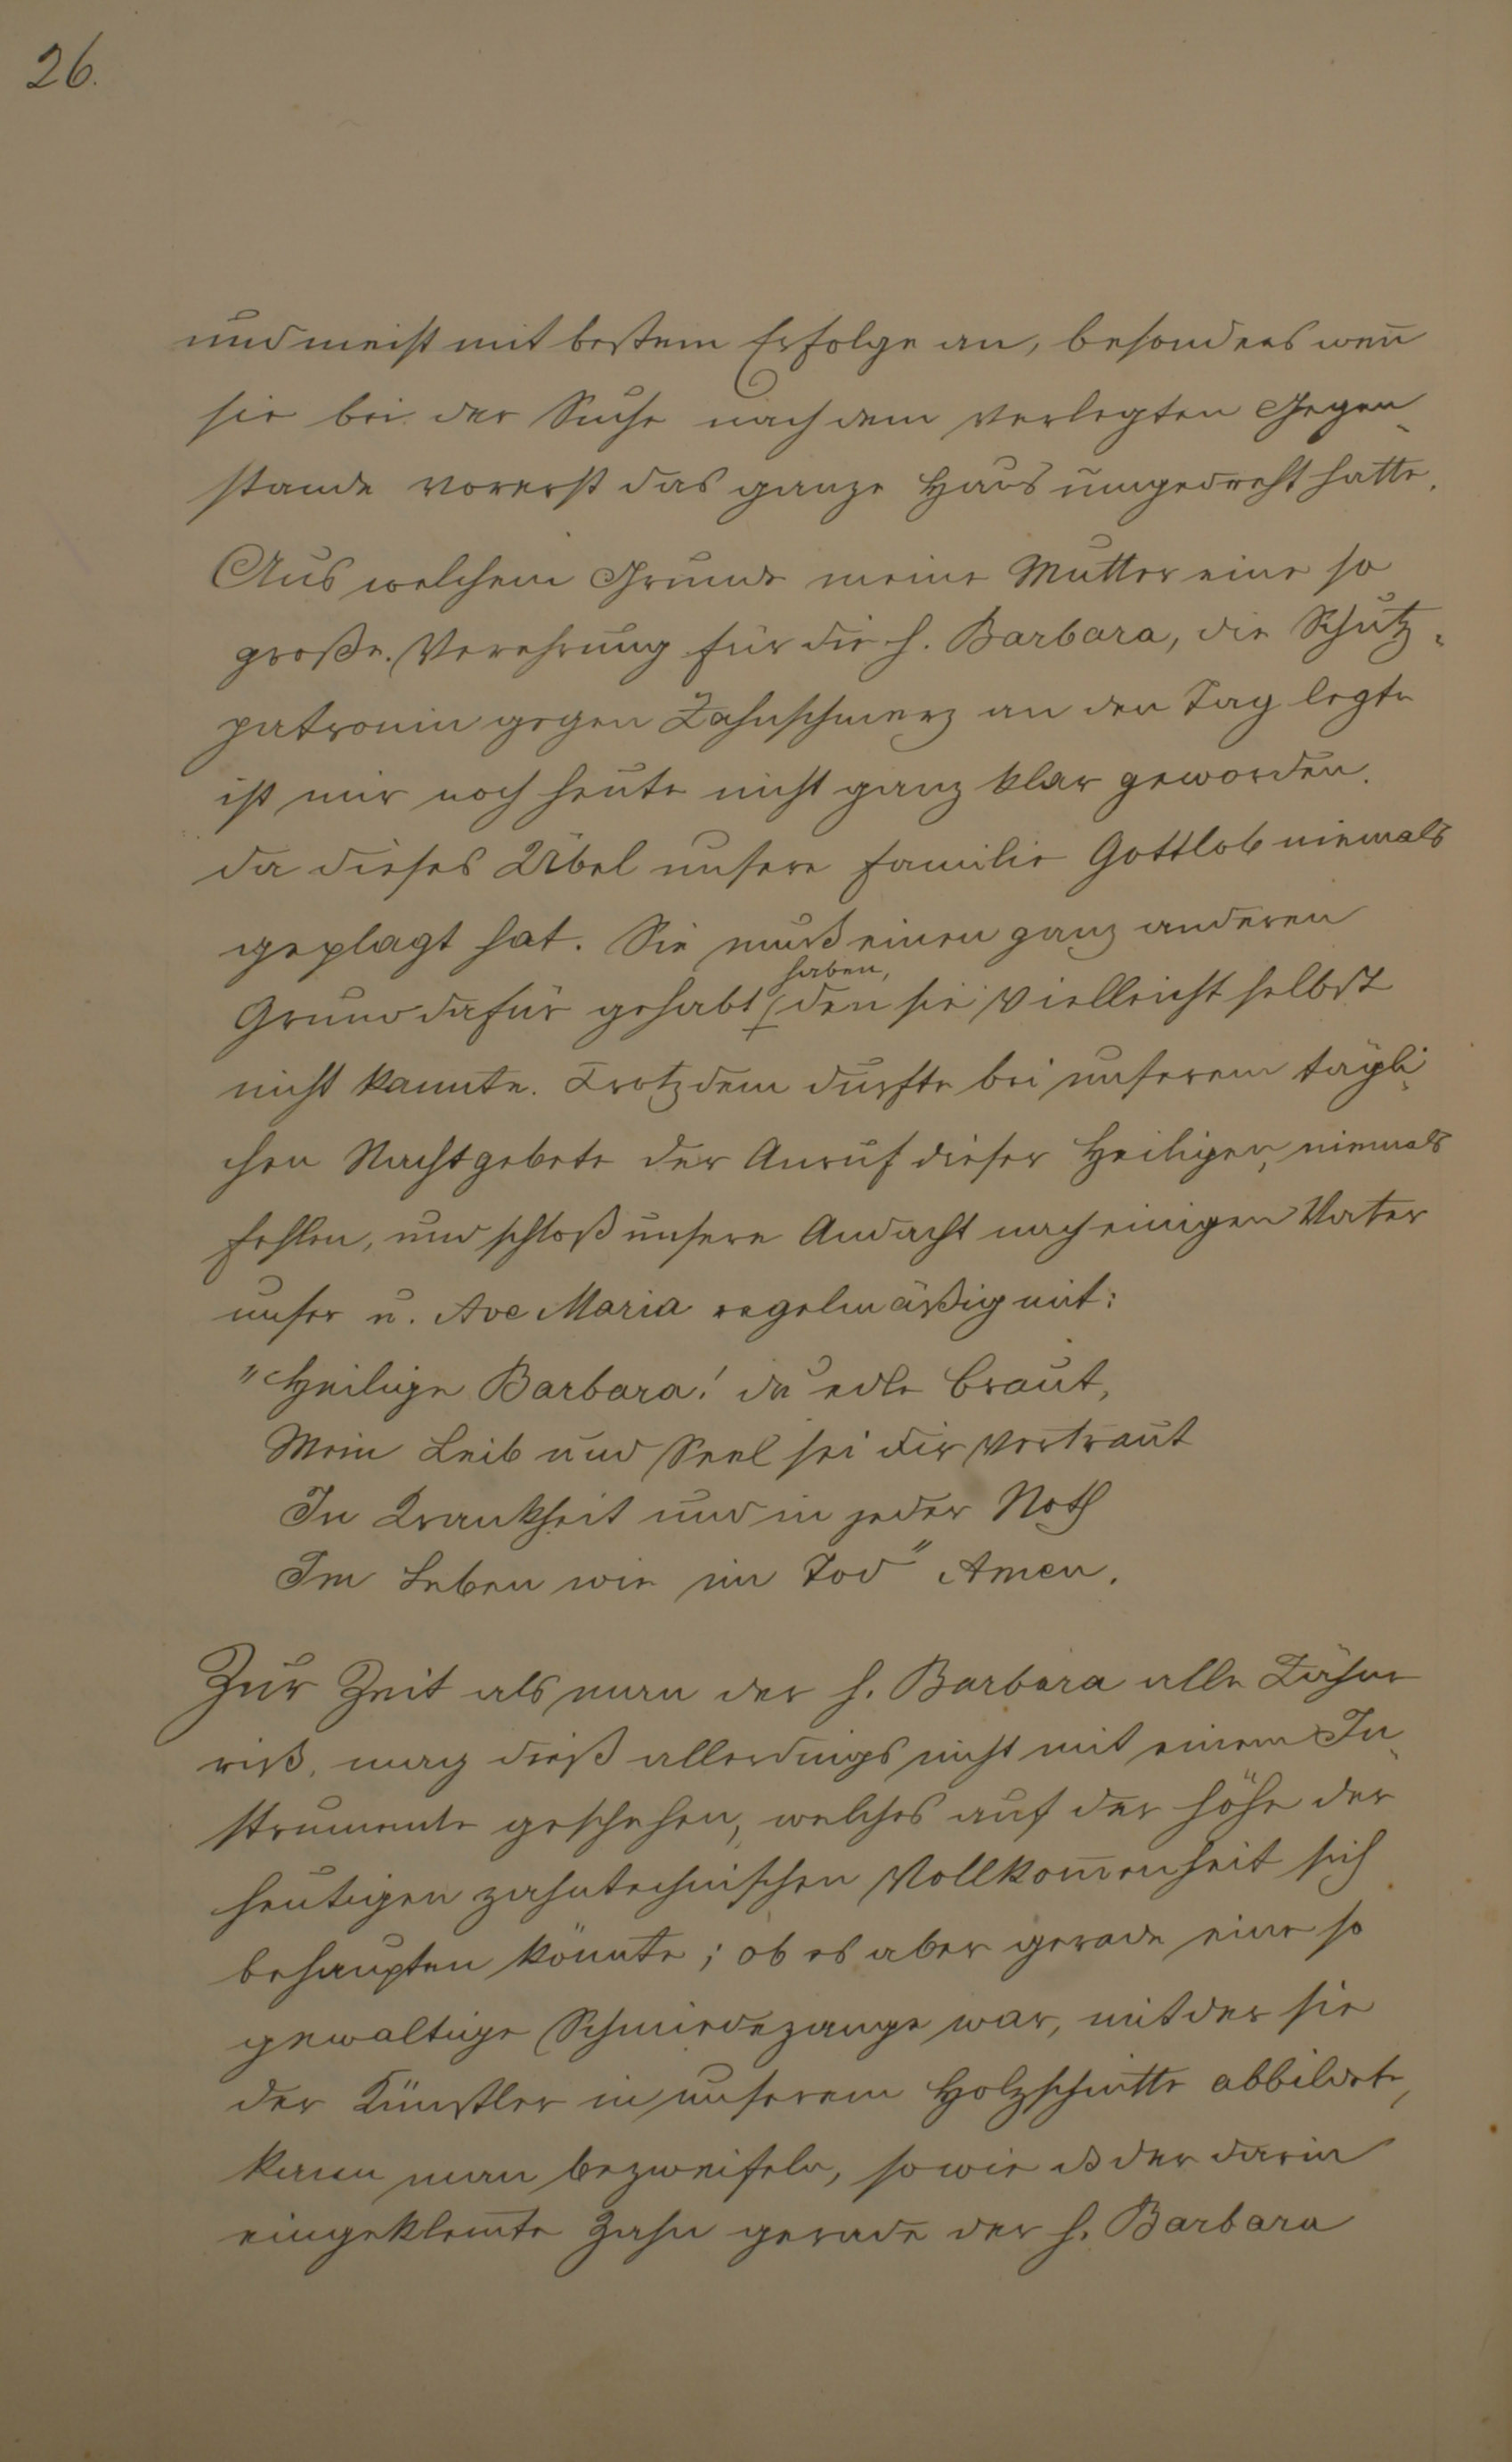 26.
und meist mit bestem Erfolge an, besonders wen̄
sie bei der Suche nach dem verlegten Gegen-
stande vorerst das ganze Haus umgedreht hatte.
Aus welchem Grunde meine Mutter eine so
große Verehrung für die h. Barbara, die Schutz-
patronin gegen Zahnschmerz an den Tag legte
ist mir noch heute nicht ganz klar geworden.
da dieses Übel unsere Familie Gottlob niemals
geplagt hat. Sie muß einen ganz anderen
haben,
Grund dafür gehabt den sie vielleicht selbst
nicht kannte. Trotzdem durfte bei unserem tägli-
chen Nachtgebete der Anruf dieser Heiligen, niemals
fehlen, und schloß unsere Andacht nach einigen Vater
unser u. Ave Maria regelmäßig mit:
"Heilige Barbara! du edle Braut,
Mein Leib und Seel sei dir vertraut
In Krankheit und in jeder Noth
Im Leben wie im Tod" Amen.
Zur Zeit als man der h. Barbara alle Zähne
riß, mag dieß allerdings nicht mit einem In-
strumente geschehen, welches auf der Höhe der
heutigen zahntechnischen Vollkom̄enheit sich
behaupten könnte; ob es aber gerade eine so
gewaltige Schmiedezange war, mit der sie
der Künstler in unserem Holzschnitte abbildete,
kann man bezweifeln, sowie ob der darin
eingeklem̄te Zahn gerade der h. Barbara